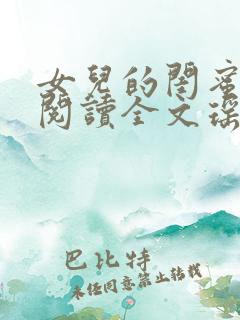 女兒的閨蜜
閱讀全文瑶
巴比特
未经同意禁止转载